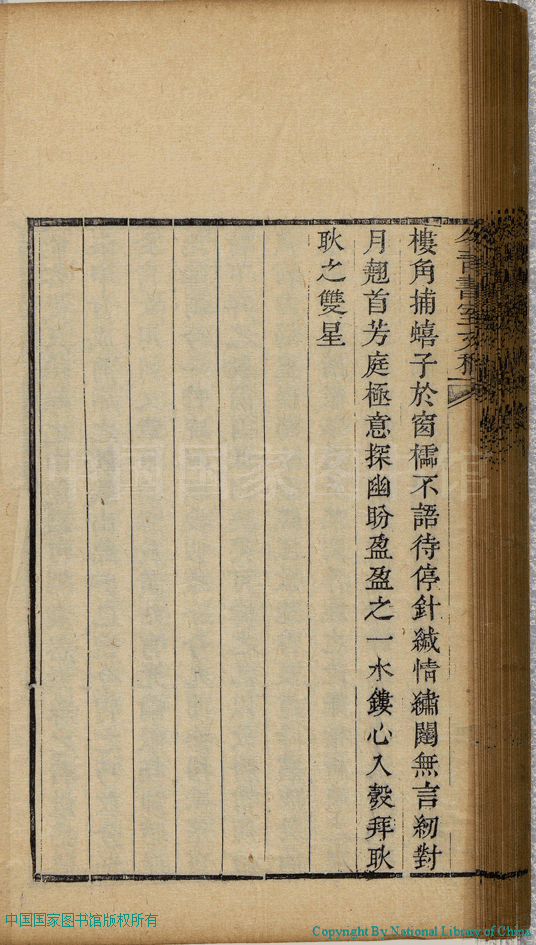 樓角捕蟢子於窗櫺不語待停針緘情繡闥無言紉對
月翹首芳庭極意探幽盼盈盈之一水鏤心入彀拜耿
耿之雙星
中国国家图书馆
中国国家图书馆版权所有
Copyright By National Library of China